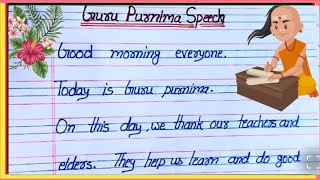 Guru Purnima Speech
Good morning everyone.
Today is Guru purnima.
On this day, we thank our teachers and
elders. They help us learn and do good